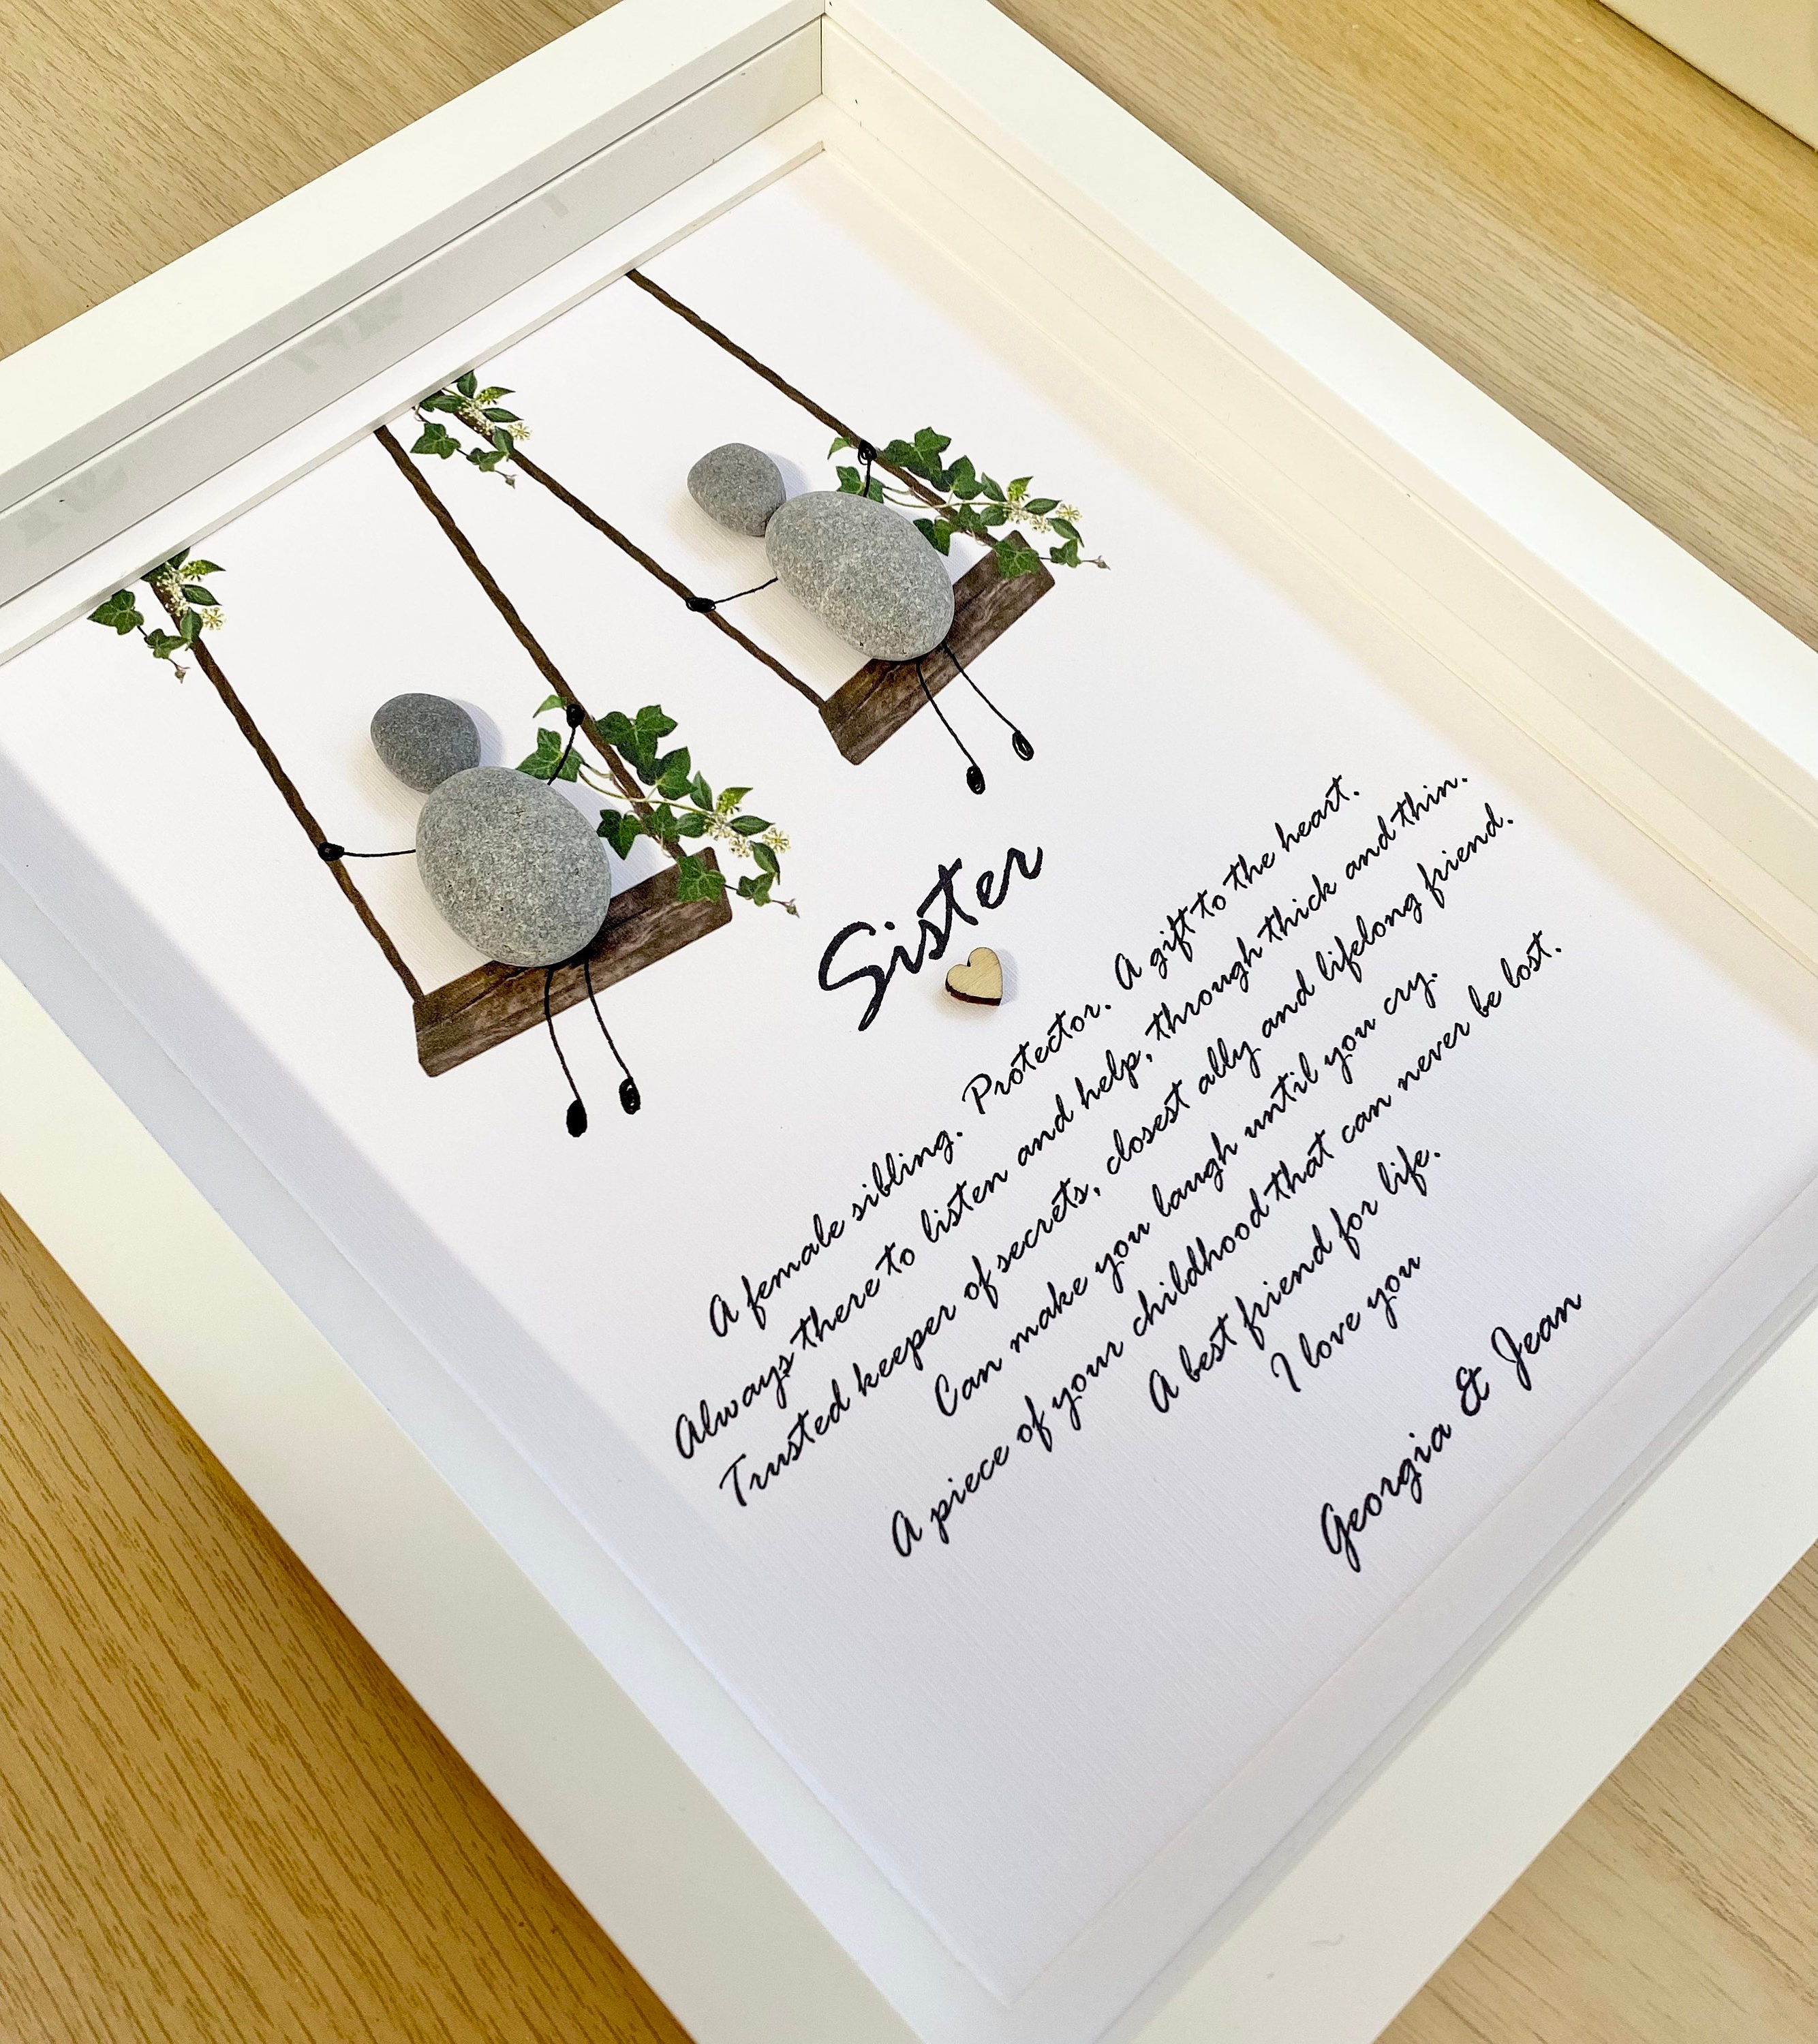 Sister
A female sibling. Protector. A gift to the heart.
Always there to listen and help, through thick and thin.
Trusted keeper of secrets, closest ally and lifelong friend.
Can make you laugh until you cry.
A piece of your childhood that can never be lost.
A best friend for life.
I love you
Georgia & Jean